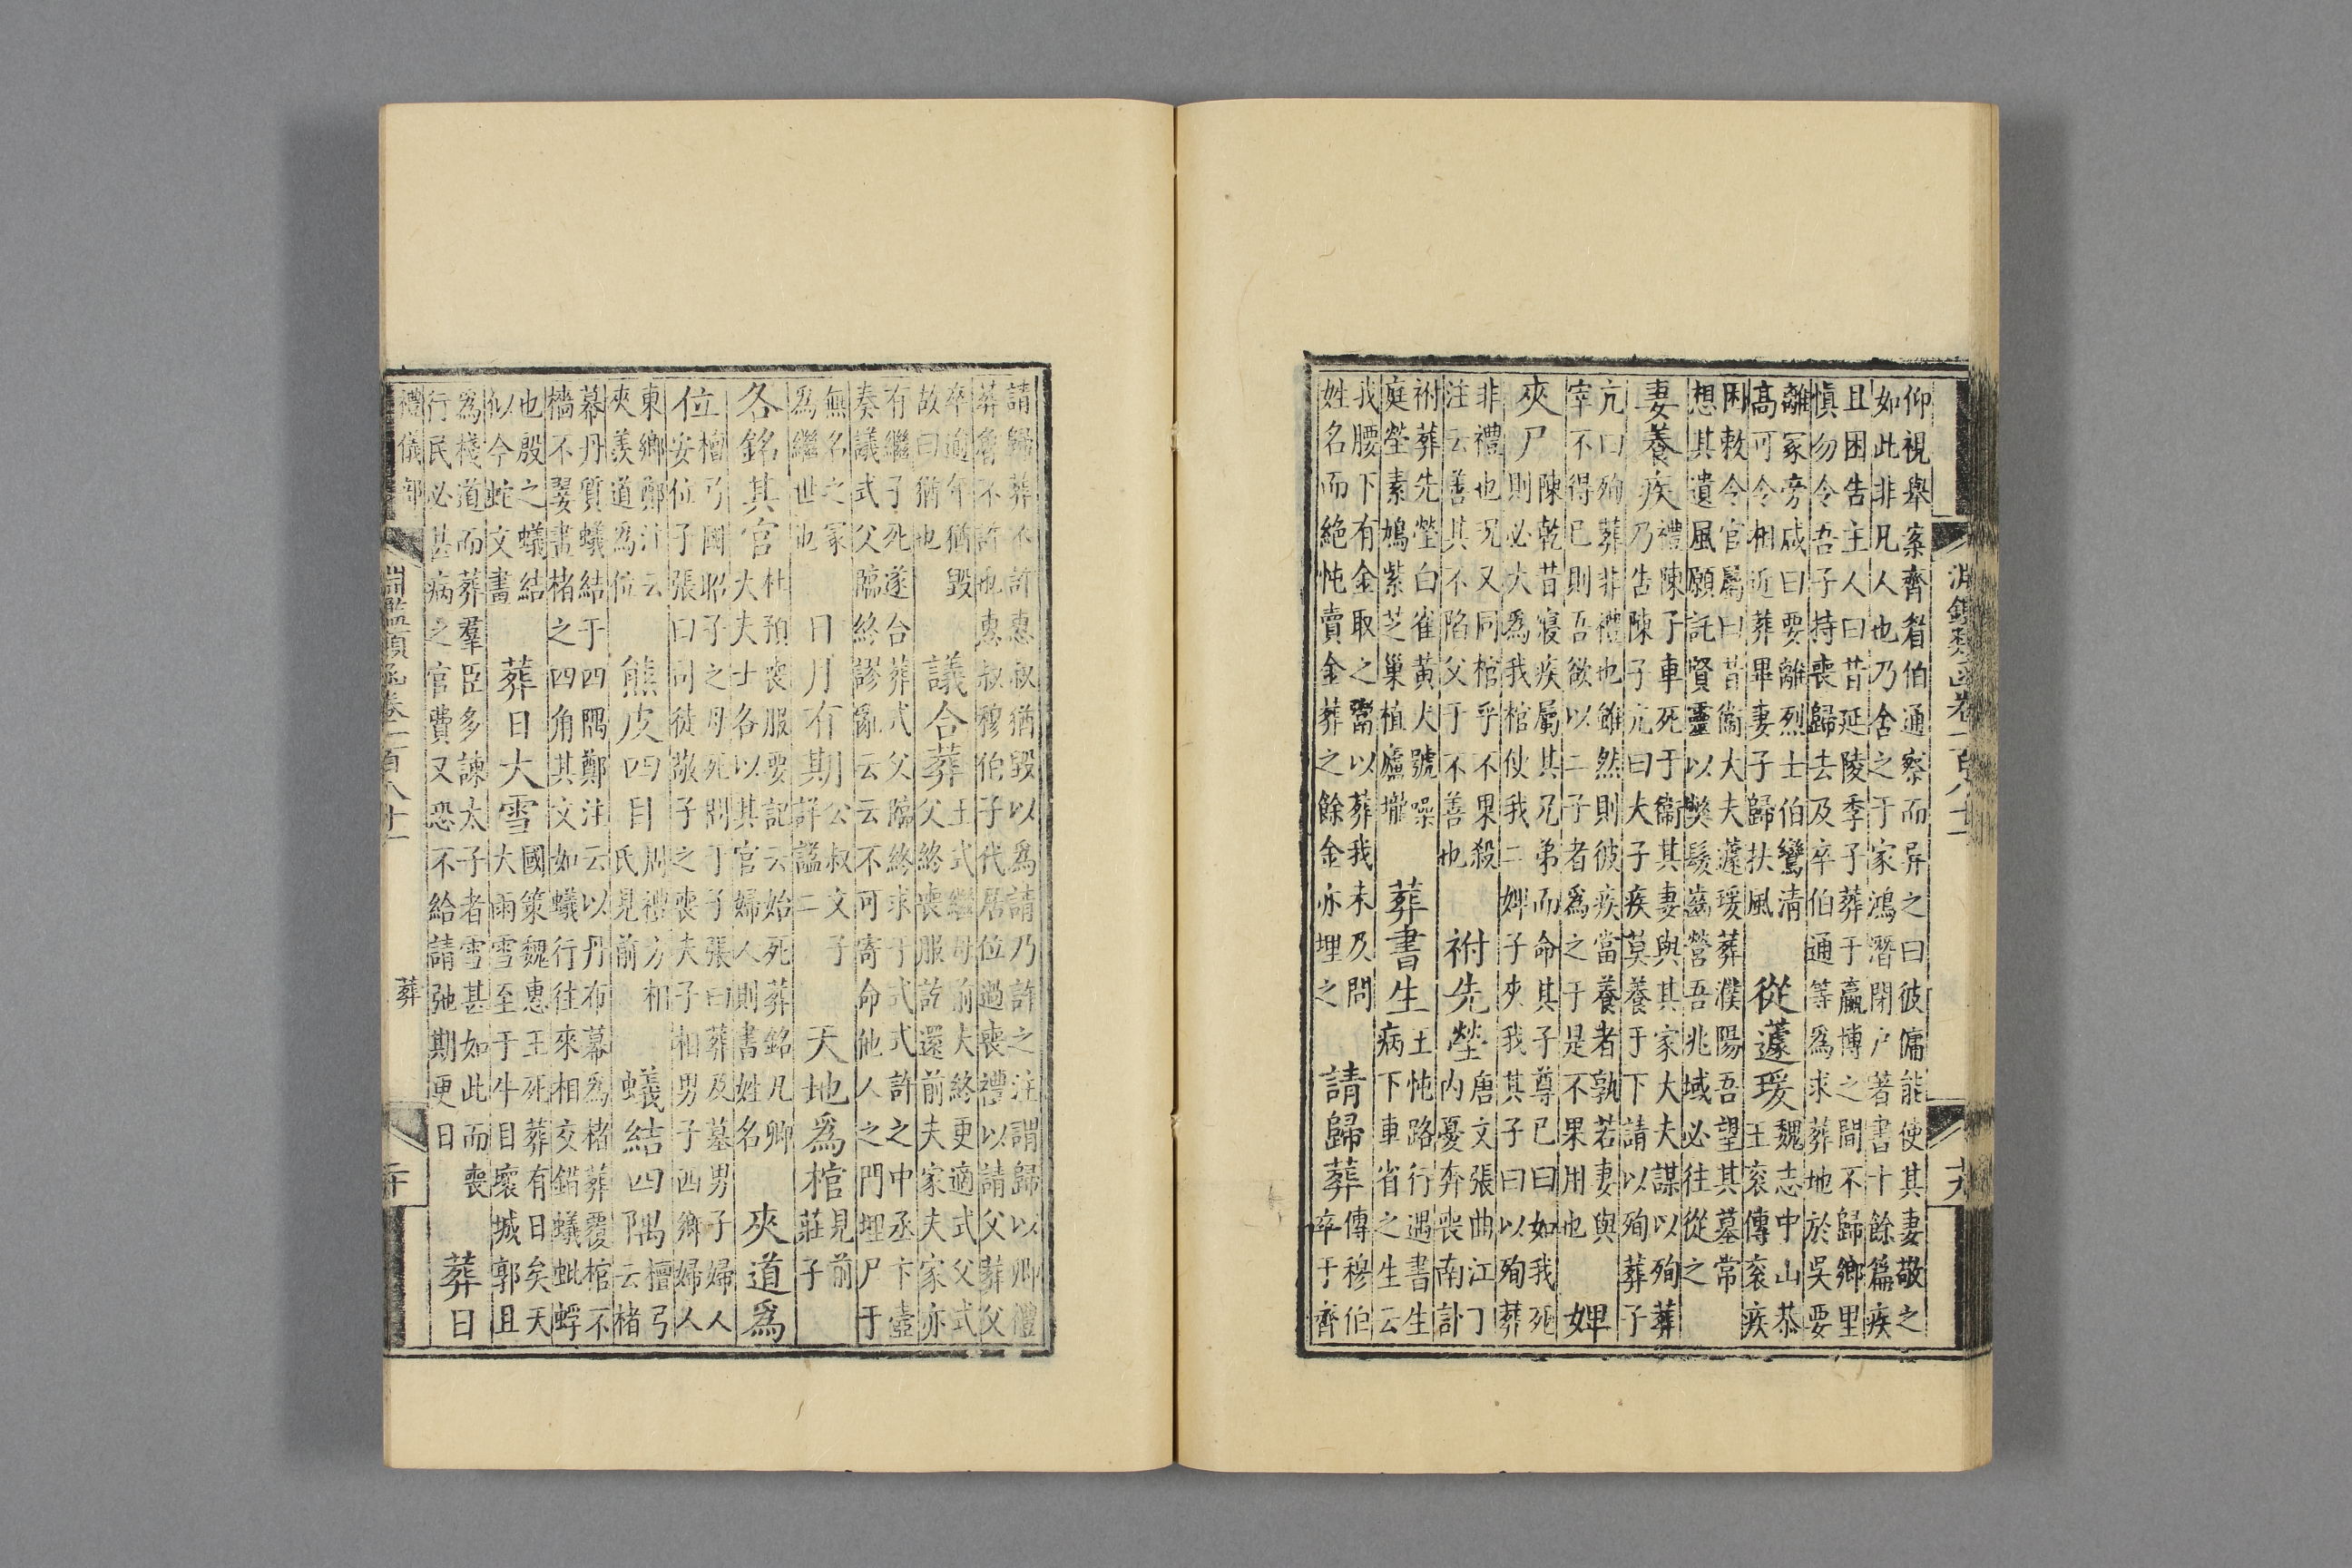 淵鑑類函卷一百八十一
十九
仰視舉案齊眉伯通察而异之曰彼傭能使其妻敬之
如此非凡人也乃舍之于家鴻潛閉户著書十餘篇疾
且困告主人曰昔延陵季子葬于嬴博之間不歸鄉里
慎勿令吾子持喪歸去及卒伯通等為求葬地於吳要
離冢旁咸曰要離烈士伯鸞清
高可令相近葬畢妻子歸扶風
從蘧瑗
魏志中山恭
王衮傳衮疾
困敕令官屬曰昔衞大夫蘧瑗葬濮陽吾望其墓常
想其遺風願託賢靈以獘髮齒營吾兆域必往從之
妻養疾
禮陳子車死于衞其妻與其家大夫謀以殉葬
乃告陳子亢曰大子疾莫養于下請以殉葬子
亢曰殉葬非禮也雖然則彼疾當養者孰若妻與
宰不得已則吾欲以二子者為之于是不果用也
婢
夾尸
陳乾昔寢疾屬其兄弟而命其子尊已曰如我死
則必大為我棺使我二婢子夾我其子曰以殉葬
非禮也况又同棺乎不果殺
注云善其不陷父于不善也
祔先塋
唐文張曲江丁
内憂奔喪南訃
祔葬先塋白雀黃犬號噪
庭塋素鳩紫芝巢植廬壠
葬書生
王忳路行遇書生
病下車省之生云
我腰下有金取之當以葬我未及問
姓名而絶忳賣金葬之餘金亦埋之
請歸葬
傳穆伯
卒于齊
請歸葬不許惠叔猶毀以為請乃許之注謂歸以卿禮
葬魯不許也惠叔穆伯子代居位過喪禮以請父葬父
卒逾年猶毀
故曰猶也
議合葬
王式繼母前夫終更適式父式
父終喪服訖還前夫家夫家亦
有繼子死遂合葬式父臨終求于式式許之中丞卞壼
奏議式父臨終謬亂云云不可寄命他人之門埋尸于
無名之冢
為繼世也
日月有期
公叔文子
許謚二
天地為棺
見前
莊子
各銘其官
杜預喪服要記云始死葬銘凡卿
大夫士各以其官婦人則書姓名
夾道為
位
檀弓國昭子之母死問于子張曰葬及墓男子婦人
安位子張曰司徒敬子之喪夫子相男子西鄉婦人
東鄉鄭注云
夾羨道為位
熊皮四目
周禮方相
氏見前
蟻結四隅
檀弓
云楮
幕丹質蟻結于四隅鄭注云以丹布幕為楮葬覆棺不
牆不翣畫楮之四角其文如蟻行往來相交錯蟻蚍蜉
也殷之蟻結
似今蛇文畫
葬日大雪
國策魏惠王死葬有日矣天
大雨雪至于牛目壞城郭且
為棧道而葬羣臣多諫太子者雪甚如此而喪
行民必甚病之官費又恐不給請弛期更日
葬日
禮儀部
淵鑑類函卷一百八十一
葬
二十